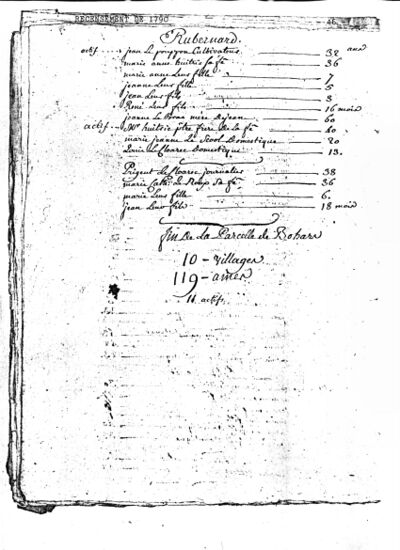 RECENSEMENT DE 1790 46
Kubernard.
actif jean Le pouppon Cultivateur 32 ans
marie anne huitric sa fe 36
marie anne Leur fille 7
jeanne Leur fille 5
jean Leur fils 3
René Leur fils 16 mois
jeanne Le Born mere de jean 60
actif Mre huitric ptre frere De la fe 40
marie jeanne Le Scool Domestique 20
Louis Le Hoarec Domestique 13.
Prigent Le Hoarec journalier 38
marie Cathe Le Roup Sa fe 36
marie Leur fille 6.
jean Leur fils 18 mois
fin De La Parcelle de Bohars
10 - villages
119 - ames
11 actifs